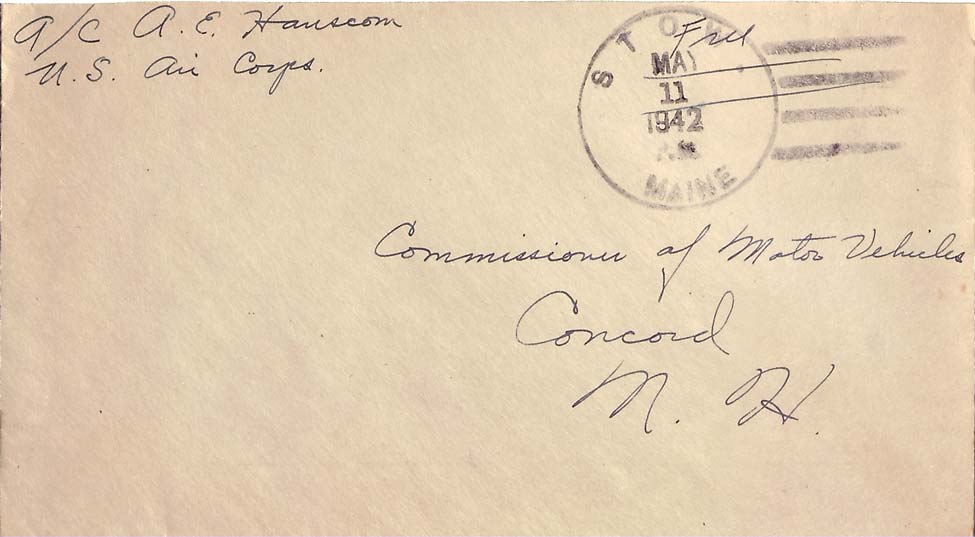 A/C A. E. Hanscom
U. S. Air Corps.
Free
STOW
MAY
11
1942
MAINE
Commissioner of Motor Vehicles
Concord
N. H.